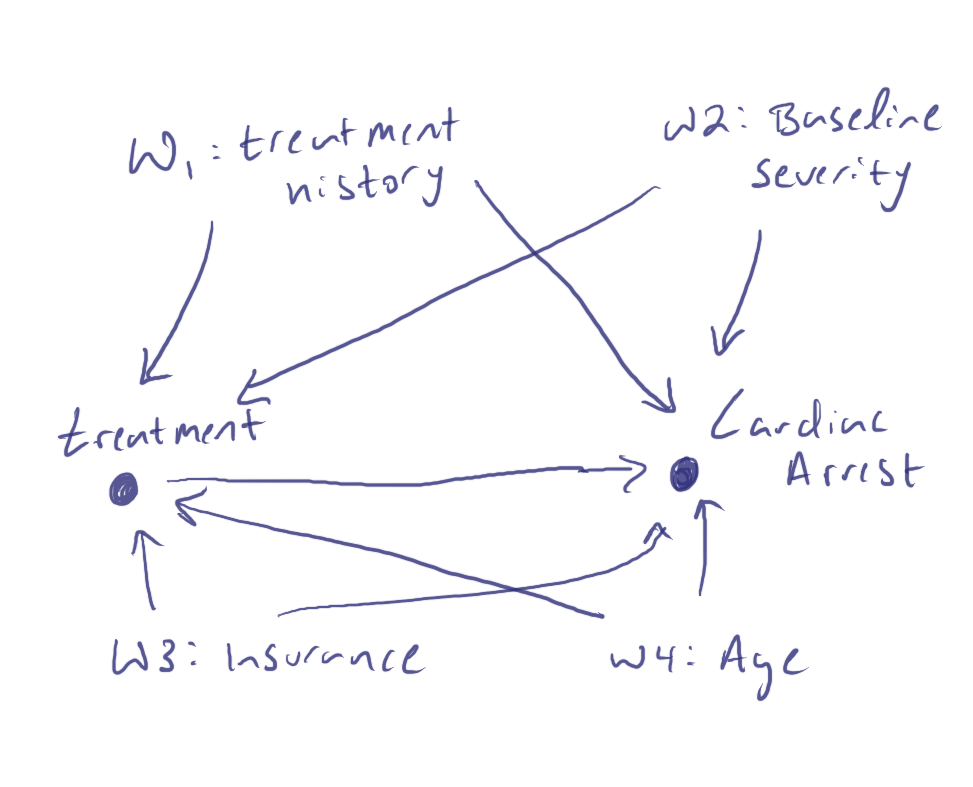 W1: treatment
history
W2: Baseline
severity
treatment
Cardiac
Arrest
W3: Insurance
W4: Age